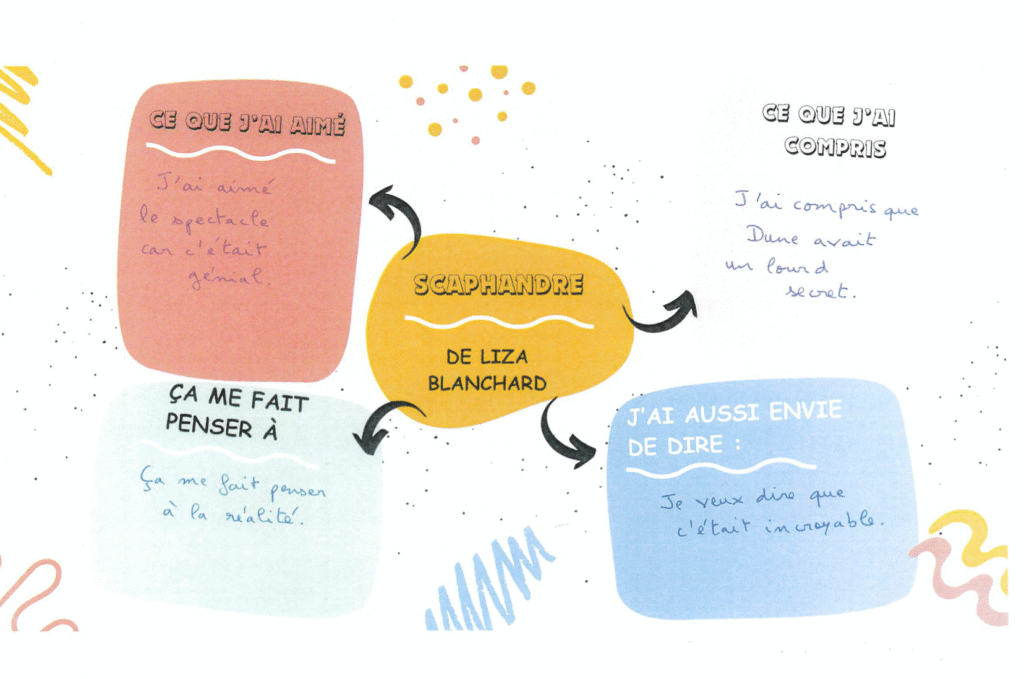 CE QUE J'AI AIMÉ
J'ai aimé
le spectacle
car c'était
génial.
CE QUE J'AI
COMPRIS
J'ai compris que
Dune avait
un lourd
secret.
SCAPHANDRE
DE LIZA
BLANCHARD
ÇA ME FAIT
PENSER À
Ça me fait penser
à la réalité.
J'AI AUSSI ENVIE
DE DIRE :
Je veux dire que
c'était incroyable.